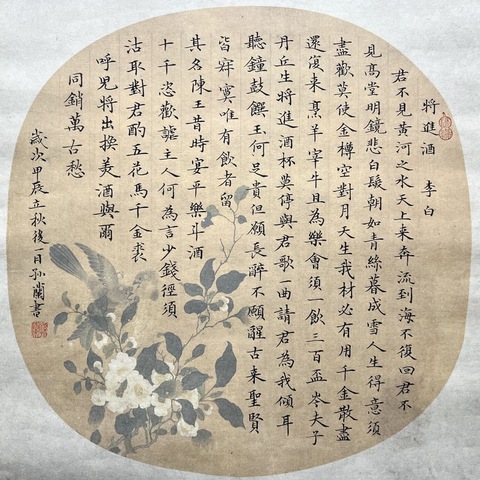 將進酒 李白
君不見黃河之水天上来奔流到海不復回君不
見高堂明鏡悲白髮朝如青絲暮成雪人生得意須
盡歡莫使金樽空對月天生我材必有用千金散盡
還復来烹羊宰牛且為樂會須一飲三百盃岑夫子
丹丘生將進酒杯莫停與君歌一曲請君為我傾耳
聽鐘鼓饌玉何足貴但願長醉不願醒古来聖賢
皆寂寞唯有飲者留
其名陳王昔時宴平樂斗酒
十千恣歡謔主人何為言少錢徑須
沽取對君酌五花馬千金裘
呼児將出換美酒與爾
同銷萬古愁
歲次甲辰立秋後一日孫蘭書